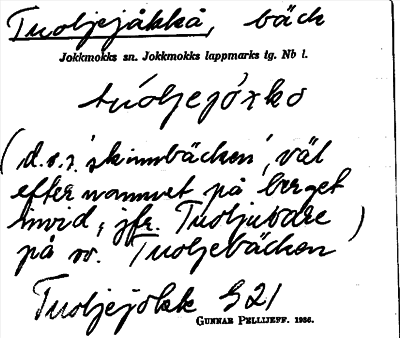 Tuoljejåkkå, bäck
Jokkmokks sn. Jokkmokks lappmarks tg. Nb l.
túoljegòxko
(d.v.s. 'skinnbäcken', väl
efter namnet på berget
invid, jfr. Tuoljubare )
på sv. Tuoljebäcken
Tuoljejokk § 21
GUNNAR PELLIJEFF. 1956.